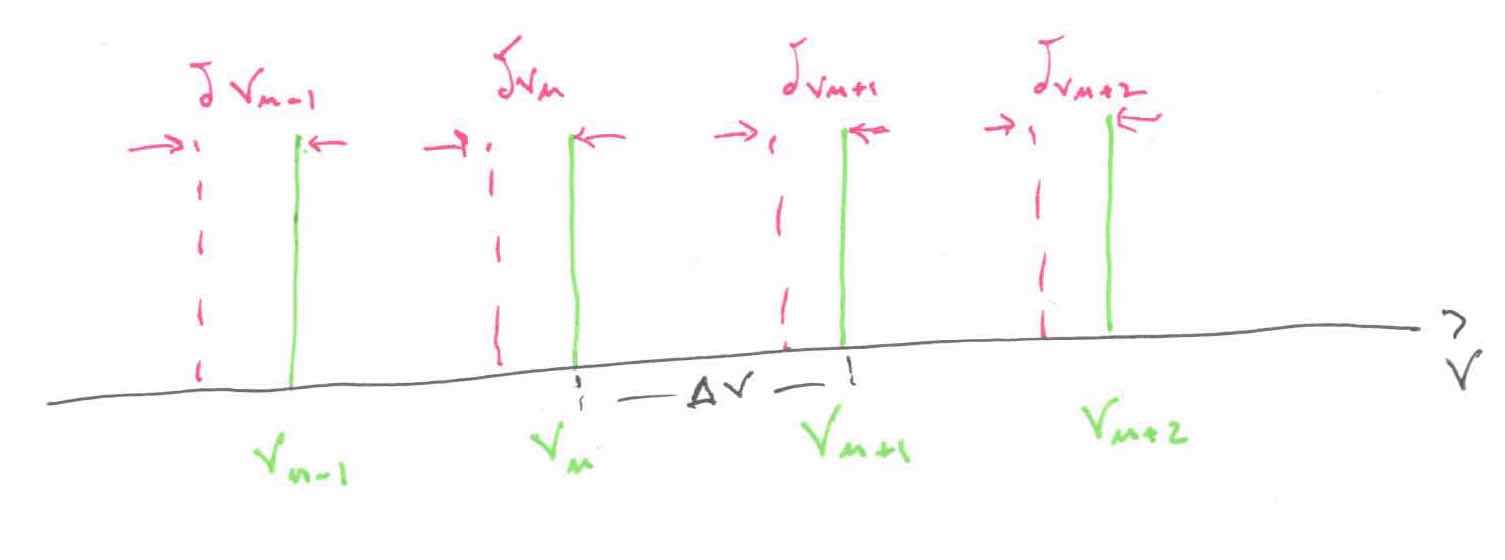 δν_{m-1} δν_m δν_{m+1} δν_{m+2}
Δν ν
ν_{m-1} ν_m ν_{m+1} ν_{m+2}